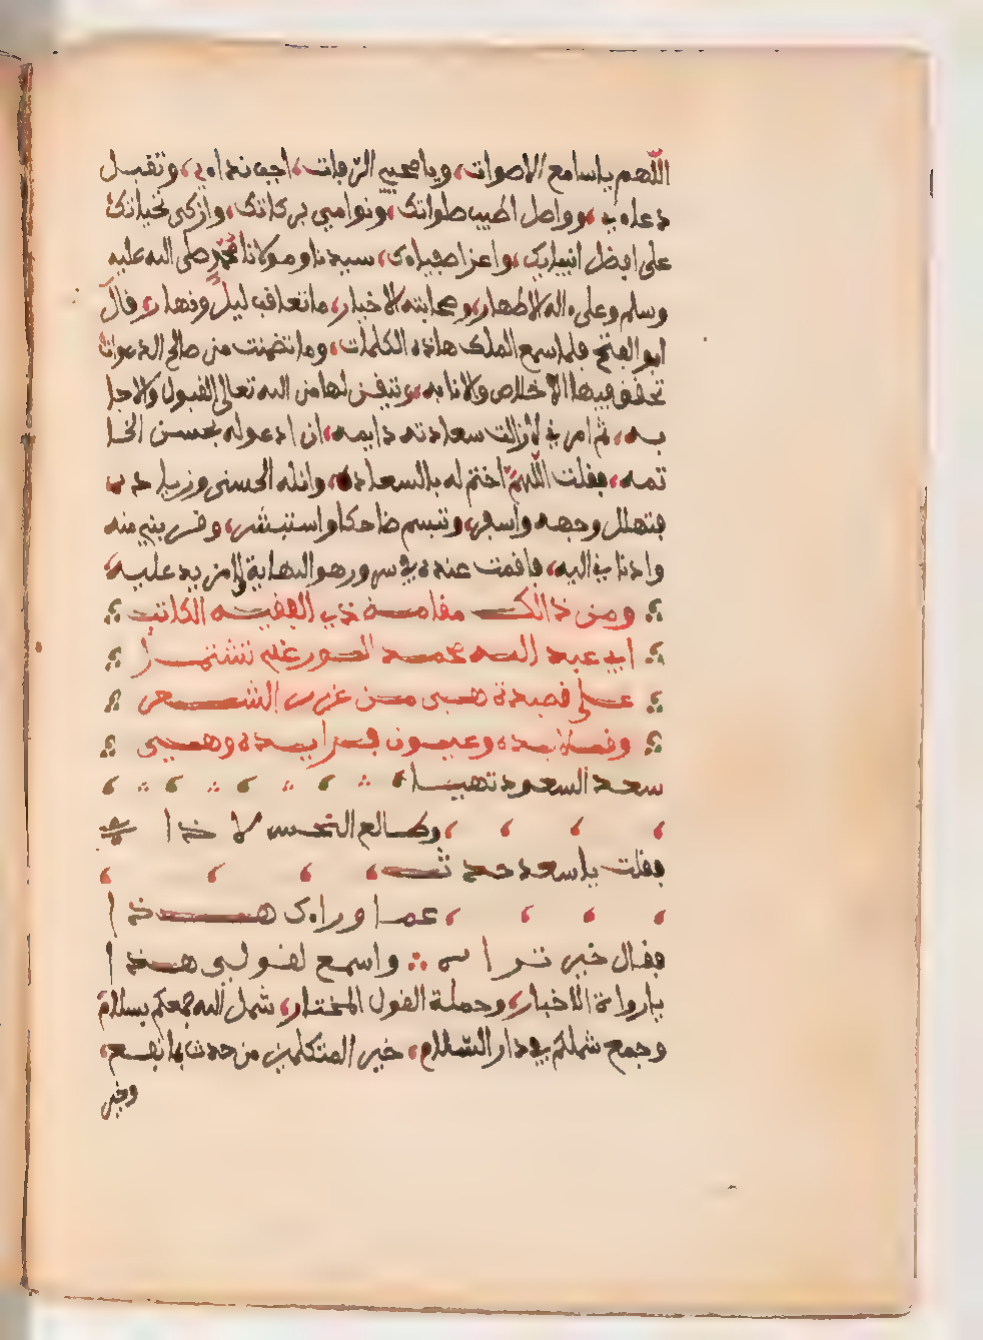 اللهم يا سامع الاصوات، ويا محيي الرفات، اجب نداءي، وتقبل
دعاءي، وواصل اطيب صلواتك، ونوامي بركاتك، وازكى تحياتك
على افضل انبيايك، واعز اصفياءك، سيدنا ومولانا محمد صلى الله عليه
وسلم وعلى ءاله الاطهار، وصحابته الاخيار، ما تعاقب ليل ونهار، قال
ابو الفتح فلما سمع الملك هاذه الكلمات، وما تضمنت من صالح الدعوات
تحقق فيها الاخلاص والانابه، وتيقن لها من الله تعالى القبول والاجا
به، ثم امرني لازالت سعادته دايمه، ان ادعو له بحسن الخا
تمه، فقلت اللهم اختم له بالسعاده، وانله الحسنى وزياده
فتهلل وجهه واسفر، وتبسم ضاحكا واستبشر، وقربني منه
وادناني اليه، فاقمت عنده في سرور هو النهاية لا مزيد عليه،
ومن ذالك مقامة ذي الفقيه الكاتب
ابي عبد الله محمد تشتمل
على قصيدة هي من غرر الشعر
وقلايده وعيون فرايده وهي
سعد السعود تهيا
وطالع النحس لاذا
فقلت يا سعد حدث
عما وراءك هذا
فقال خير ترا واسمع لقولي هذا
يا رواة الاخبار، وحملة القول المختار، شمل الله جمعكم بسلام
وجمع شملكم في دار السلام، خير المتكلمين من حدث بما نفع،
وخير